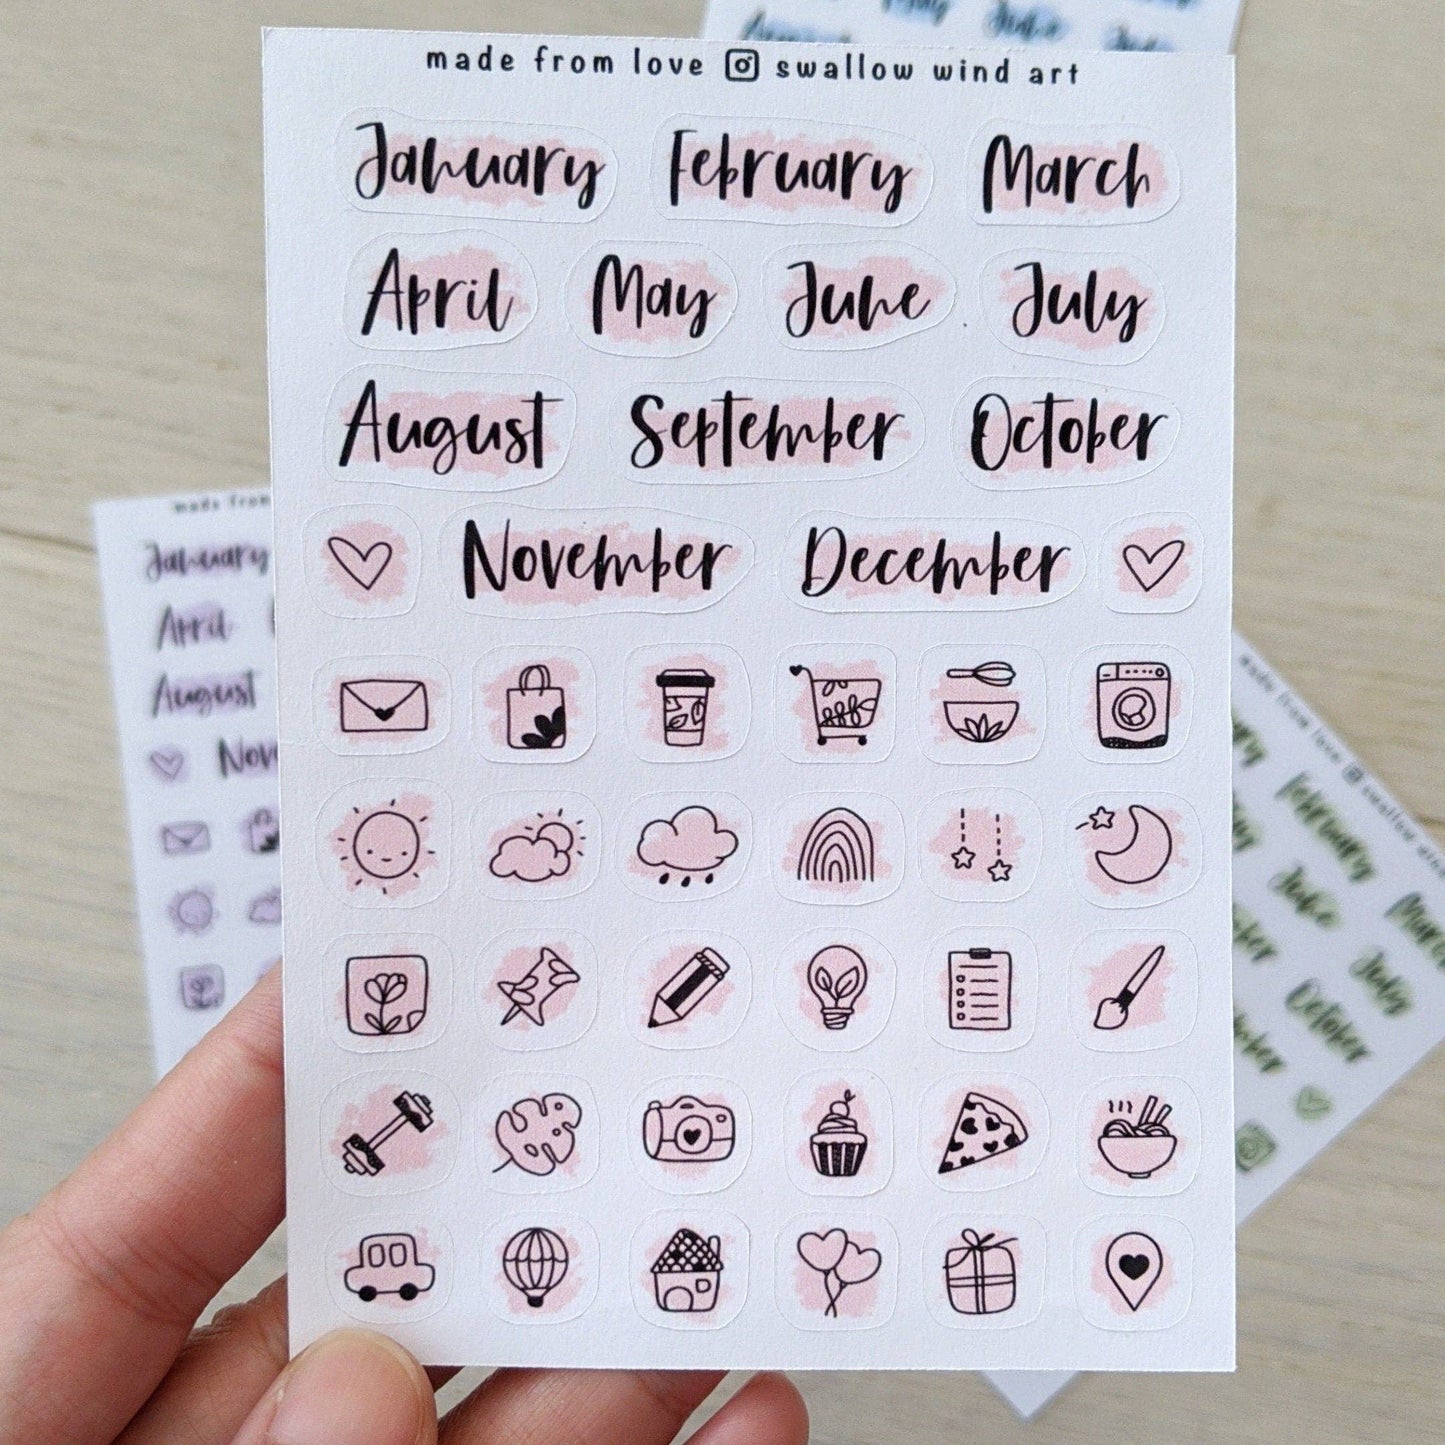 made from love swallow wind art
January February March
April May June July
August September October
November December
made from
January
April
August
Nove
May June
made from love swallow wind
February March
June July
October